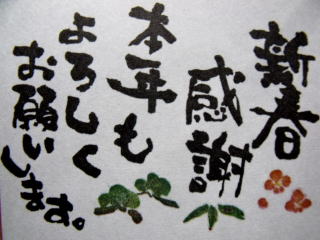 新春
感謝
本年も
よろしく
お願い
します。